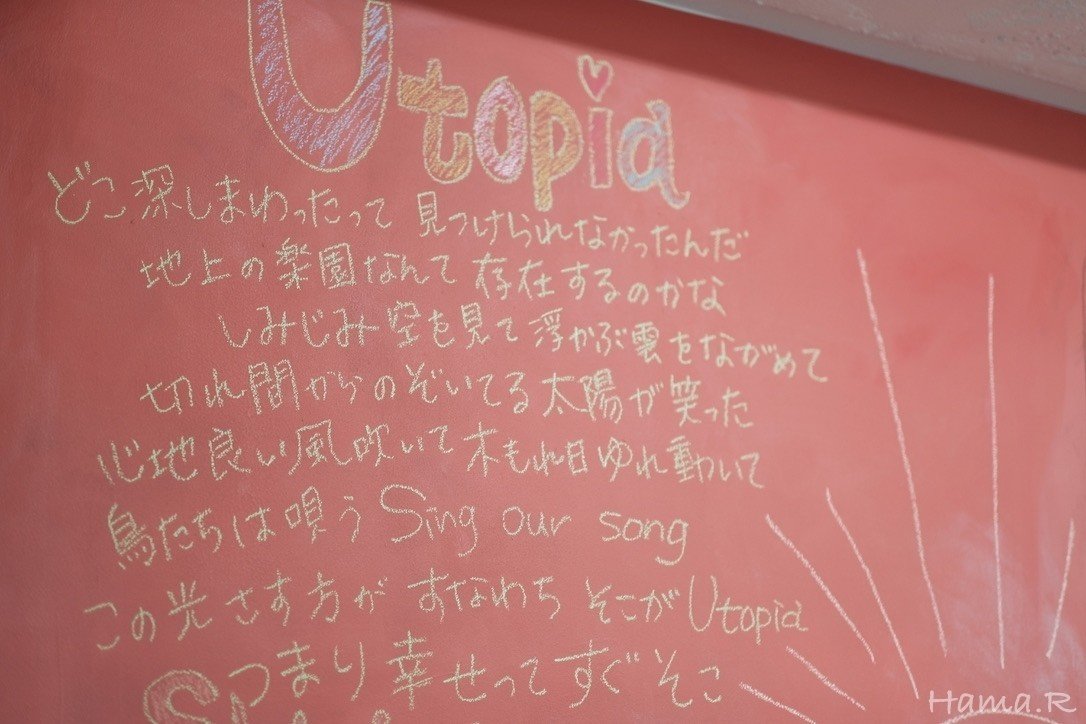 Utopia
どこ深しまわったって 見つけられなかったんだ
地上の楽園なんて 存在するのかな
しみじみ空も見て 浮かぶ雲をながめて
切れ間からのぞいてる太陽が笑った
心地良い風吹いて木もれ日ゆれ動いて
鳥たちは唄う Sing our song
この光さす方が すなわち そこが Utopia
つまり幸せってすぐそこ
Hama.R